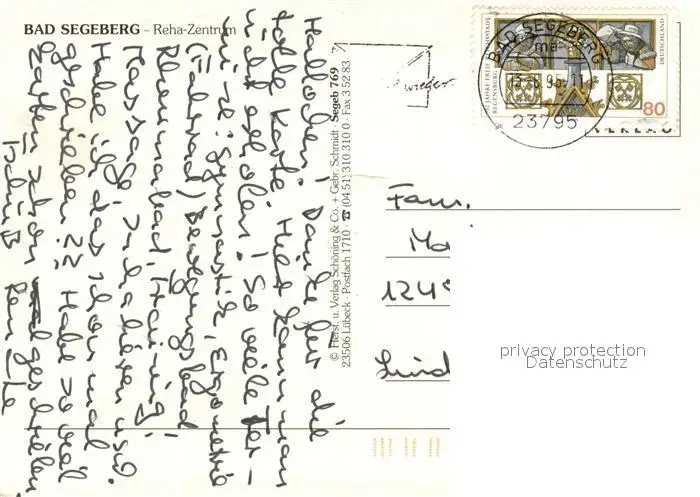 BAD SEGEBERG – Reha-Zentrum
Hallöchen! Danke für die
tolle Karte. Hier kann man
nicht erholen! So viele Ter-
mine: Gymnastik, Ergometrie
(Fahrrad), Bewegungsbad
Rheumabad, Training,
Massage, schließen usw.
Habe ich das schon mal
geschrieben?? Habe so viel
Karten schon geschrieben
Tschüß
© Herst. u. Verlag Schöning & Co. + Gebr. Schmidt · Segeb 769
23506 Lübeck · Postfach 1710 · ☎ (04 51) 310 310 0 · Fax 3 52 83
wieder
BAD SEGEBERG
ma
23795
REGENSBURG
DEUTSCHLAND
80
Fam.
Ma
1249
Lind
privacy protection
Datenschutz